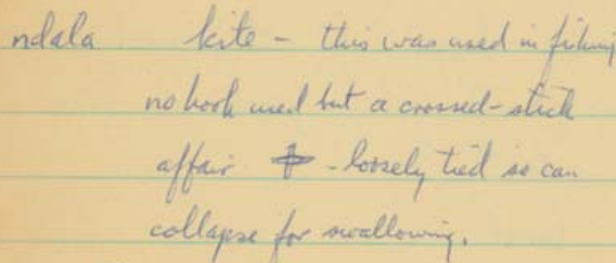 ndala kite - this was used in fishing
no hook used but a crossed-stick
affair - loosely tied so can
collapse for swallowing.